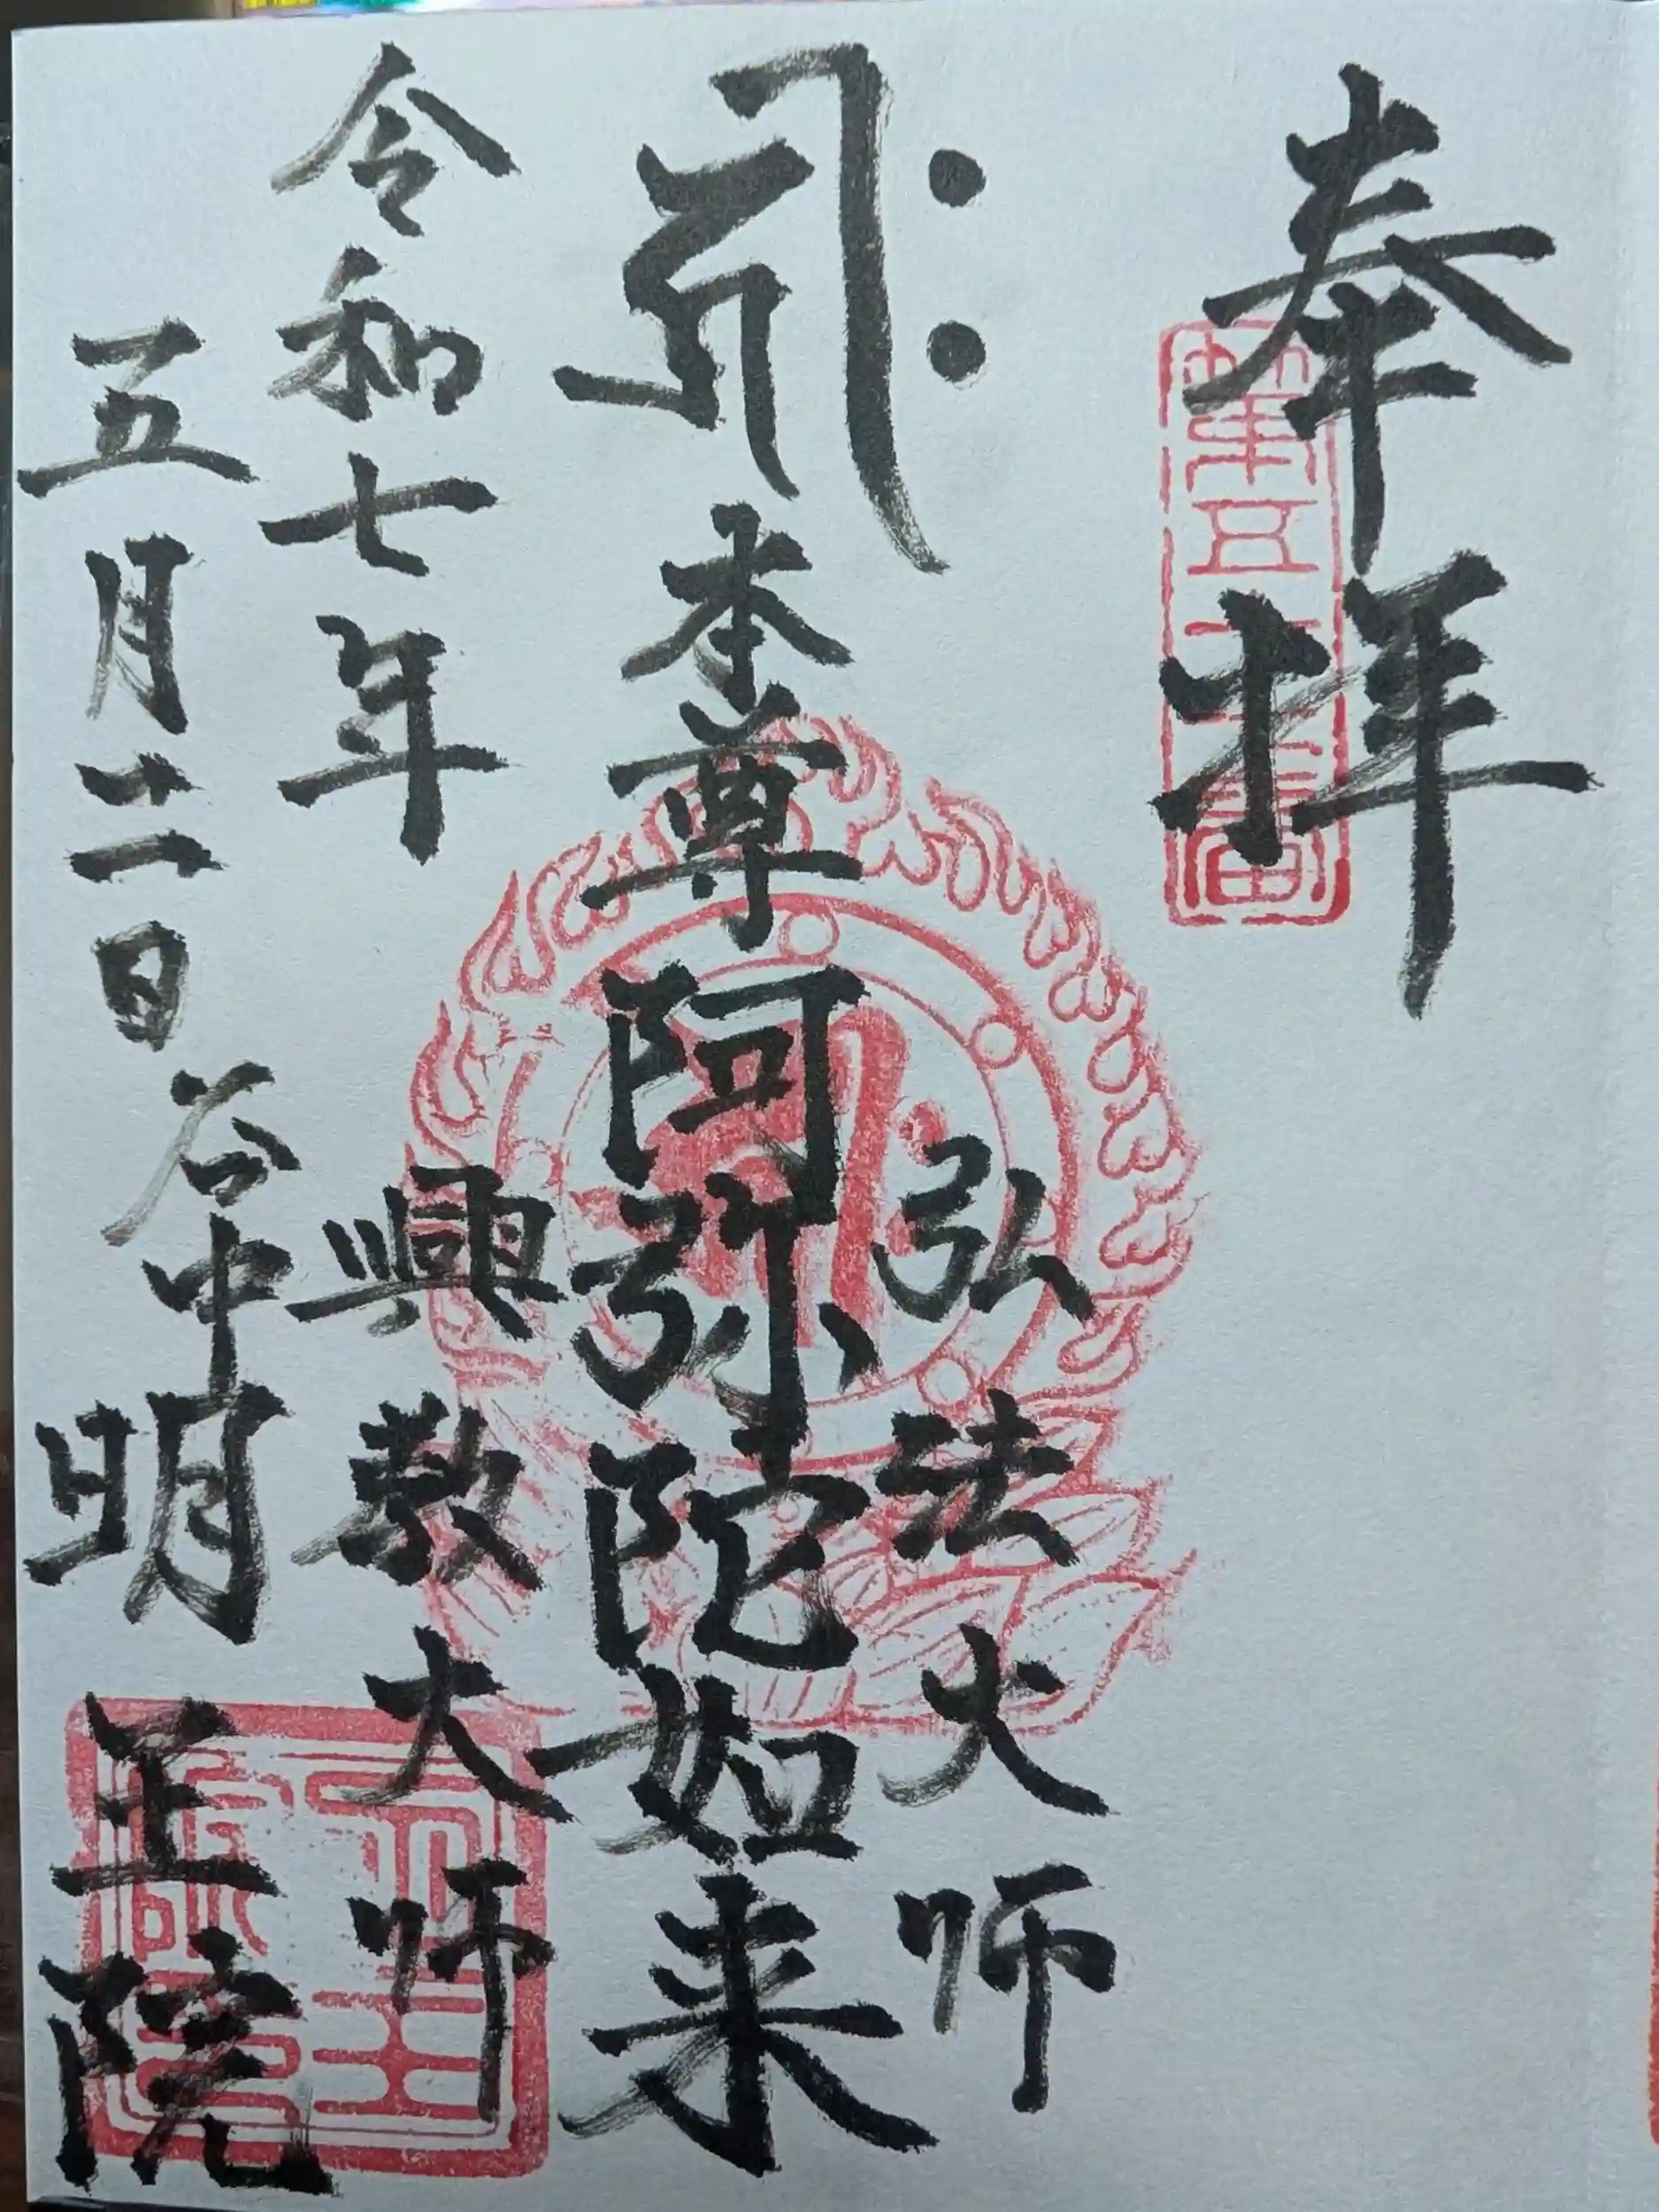 奉拝
第五十七番
𑖮𑖿𑖨𑖱𑖾
本尊阿弥陀如来
弘法大師
興教大師
令和七年
五月 日
谷中
明王院